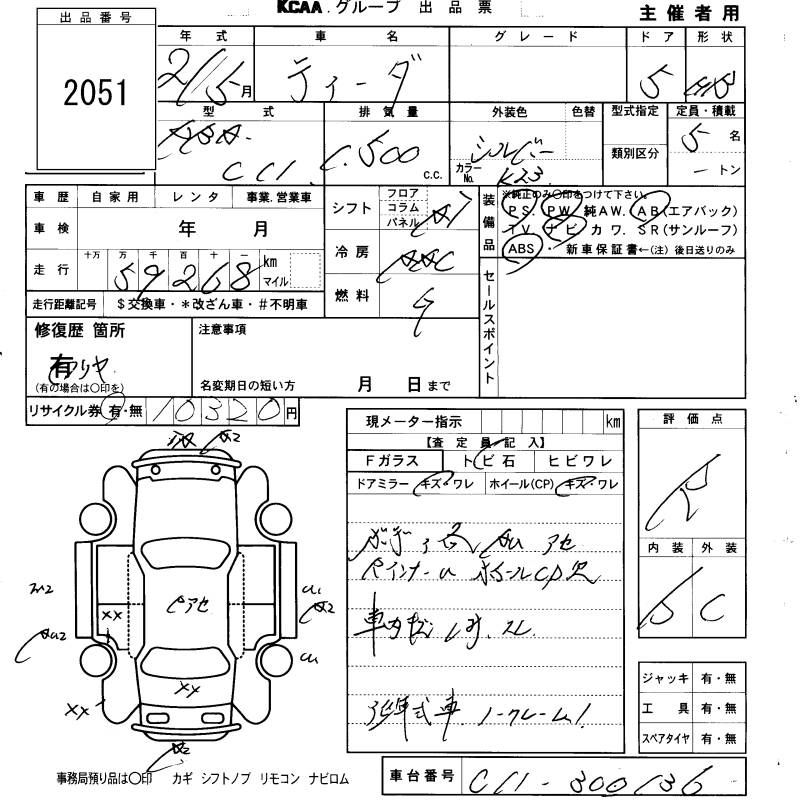 KCAA グループ 出品票
主催者用
出品番号
2051
年式 車名 グレード ドア 形状
月 ティーダ 5
型式 排気量 外装色 色替 型式指定 定員・積載
1.500 c.c. シルバー 5名
C11 カラーNo. K23 類別区分 トン
車歴 自家用 レンタ 事業.営業車
車検 年 月
走行 十万 万 千 百 十 一
59268 km マイル
走行距離記号 $交換車・*改ざん車・#不明車
シフト フロア コラム パネル AT
冷房 AAC
燃料
装備品 ※純正のみ〇印をつけて下さい。
PS. PW. 純AW. AB(エアバック)
TV. ナビ カワ. SR(サンルーフ)
ABS・ 新車保証書←(注)後日送りのみ
セールスポイント
修復歴 箇所
有
(有の場合は〇印を)
注意事項
名変期日の短い方 月 日まで
リサイクル券 有・無 10320円
現メーター指示 km
【査定員記入】
Fガラス トビ石 ヒビワレ
ドアミラー キズ・ワレ ホイール(CP) キズ・ワレ
ホールCP欠
ノークレーム!
評価点
R
内装 外装
B C
A2
XX
ピアセ
A2
XX
XX
ジャッキ 有・無
工具 有・無
スペアタイヤ 有・無
事務局預り品は〇印 カギ シフトノブ リモコン ナビロム
車台番号 C11-300136